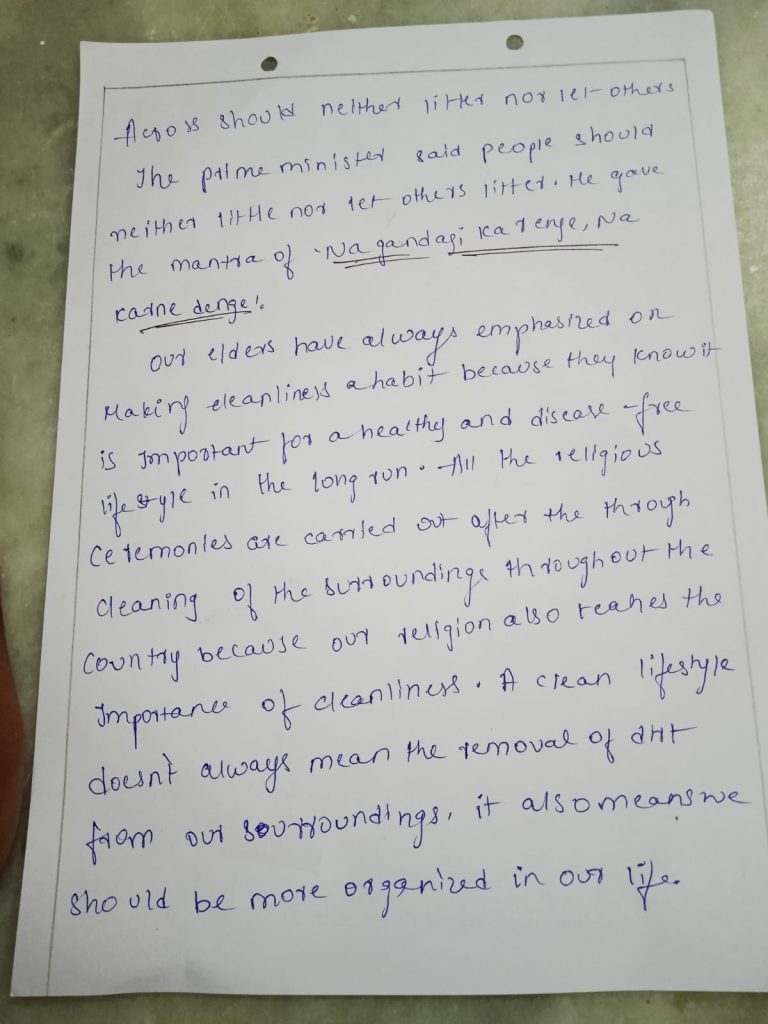 Across should neither litter nor let others
The prime minister said people should
neither little nor let others litter. He gave
the mantra of 'Na gandagi karenge, Na
karne denge'.
our elders have always emphasized on
Making cleanliness a habit because they know it
is Important for a healthy and disease-free
lifestyle in the long run. All the religious
Ceremonies are carried out after the through
cleaning of the surroundings throughout the
Country because our religion also teahes the
Importance of cleanliness. A clean lifestyle
doesn't always mean the removal of dirt
from our sourroundings, it also means we
should be more organized in our life.